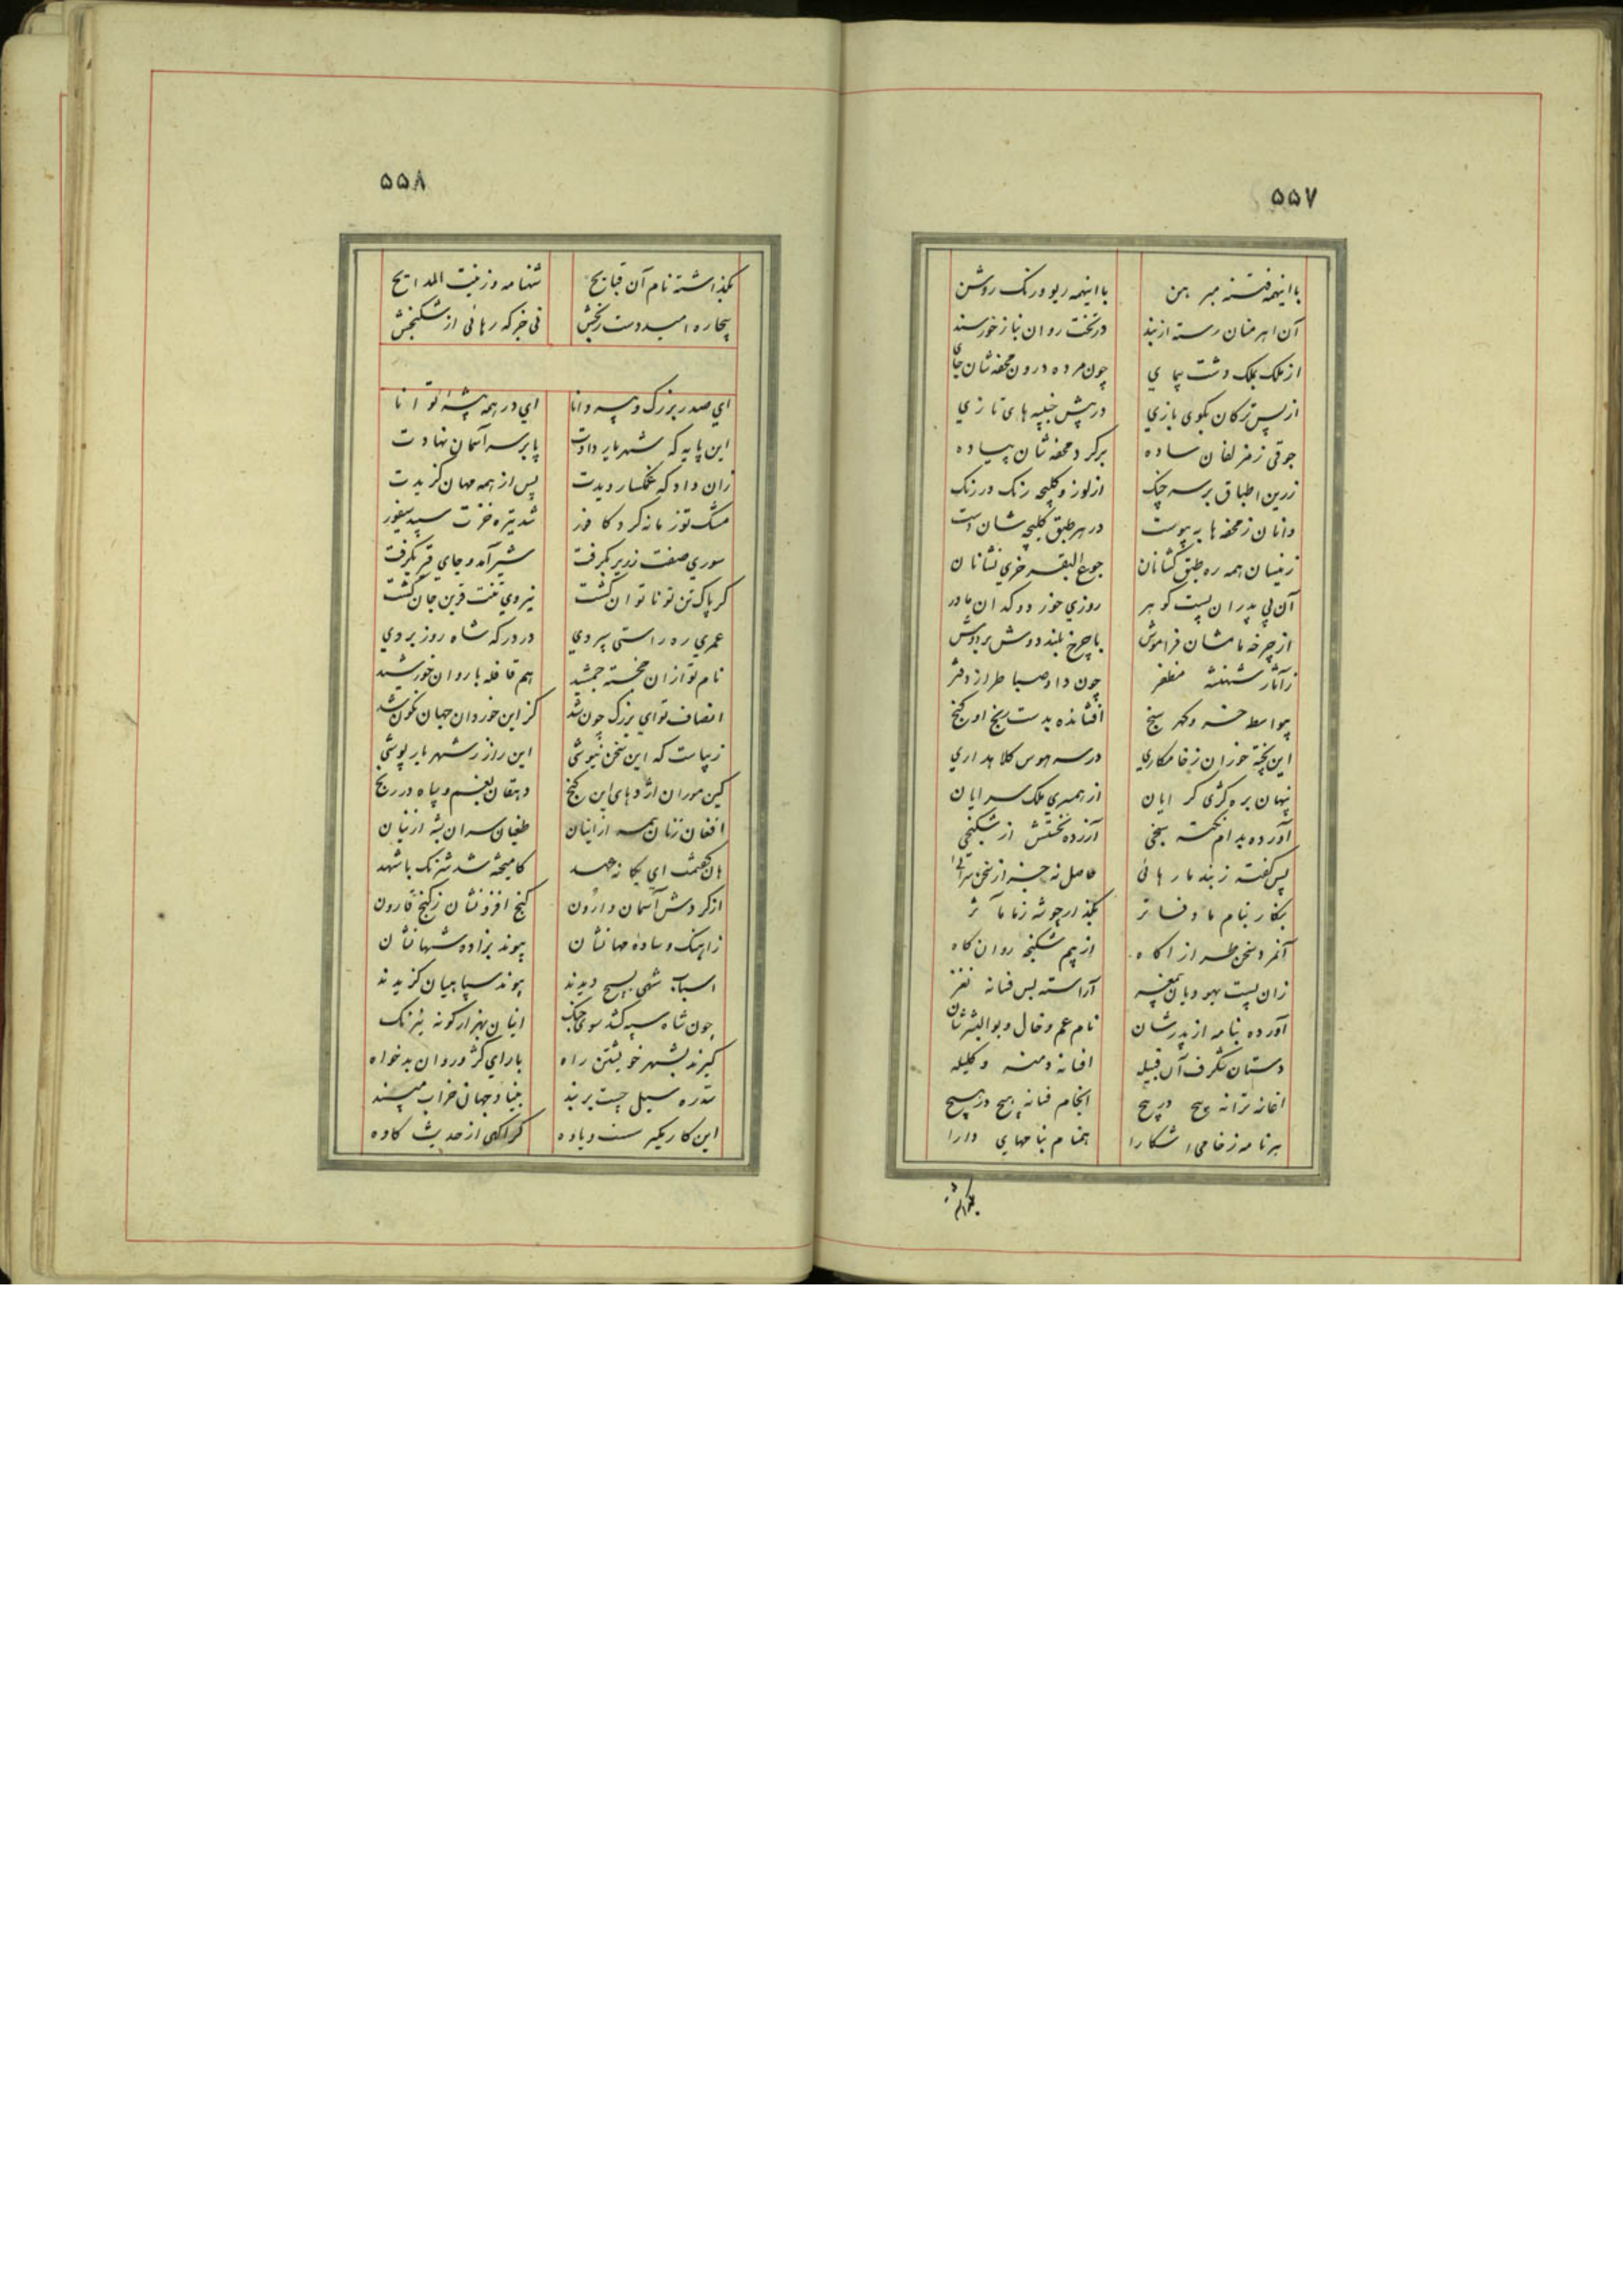 ۵۵۷
با اینهمه فتنه مبر بهن با اینهمه ریو ورنک روشن
آن اهرمنان رسته از بند در تخت روان بناز خورسند
از ملک بملک دشت پیمای چون مرده درون محفه شان جای
از پس ترکان بکوی بازی در پیش جنیبه های تازی
جوقی زمزلفان ساده بر کرد محفه شان پیاده
زرین اطباق بر سر چنک از لوز و کلیچه رنک در رنک
دانان ز محفه ها به پیوست در هر طبق کلیچه شان دست
زینسان همه ره طبق کشانان جوع البقر خری نشانان
آن بی پدران پست کوهر روزی خور دوکدان مادر
از چرخه مامشان فراموش با چرخ بلند دوش بر دوش
ز آثار شهنشه مظفر چون داد صبا طراز دفتر
بواسطه خسرو کهر سنج افشانده بدست رنج او کنج
این پخته خوران ز خامکاری در سر هوس کلاهداری
پنهان بره کژی کرایان از همسری ملک سرایان
آورده بدام نکته سنجی آزرده تنش از شکنجی
پس گفته ز بند ما رهائی حاصل نه جز از سخن سرائی
بنکار بنام ما دفاتر بکذار چو شه ز ما مآثر
آنمرد سخن طراز آکاه از بیم شکنجه روان کاه
زان پست یهودیان بیمغز آراسته بس فسانه نغز
آورده بنامه از پدرشان نام عم و خال و بوالبشرشان
دستان شکرف آن قبیله افسانه دمنه و کلیله
آغاز ترانه هیچ در هیچ انجام فسانه پیچ در پیچ
بر نامه ز خامی آشکارا همنام بنامهای دارا
بکذاشته
۵۵۸
بکذاشته نام آن قبایح شهنامه و زینت المدایح
بیچاره امید دست رنجش نی جز که رهائی از شکنجش
ای صدر بزرک و پیر دانا ای در همه پیشه توانا
این پایه که شهریار دادت پا بر سر آسمان نهادت
زان داد که غمکسار دیدت پس از همه مهان کزیدت
مشک تو زمانه کرد کافور شد تیره خزت سپید سیفور
سوری صفت زریر بکرفت شیر آمد و جای قیر بکرفت
کر پاک تن تو ناتوان کشت نیروی تنت قرین جان کشت
عمری ره راستی سپردی در درکه شاه روز بردی
نام تو ازان خجسته جمشید هم قافله با روان خورشید
انصاف تو ای بزرک چون شد کز این خوردان جهان نکون شد
زیباست که این سخن نیوشی این راز ز شهریار پوشی
کین موران اژدهای این کنج دهقان بغم و سپاه در رنج
افغان زنان همه از اینان طغیان سران بشه از اینان
هان گفتمت ای یکانه عهد کامیخته شد شرنک با شهد
از کردش آسمان وارون کنج افزونشان ز کنج قارون
ز آهنک وساده مهانشان پیوند بزاده شهانشان
اسباب شهی بسیج دیدند پیوند سپاهیان کزیدند
چون شاه سپه کشد سوی جنک اینان بهزار کونه نیرنک
کیرند بشهر خویشتن راه با رای کژ و روان بدخواه
سد ره سیل چست بربند بنیاد جهانی خراب مپسند
این کار مکیر سست و ساده کر آکهی از حدیث کاوه